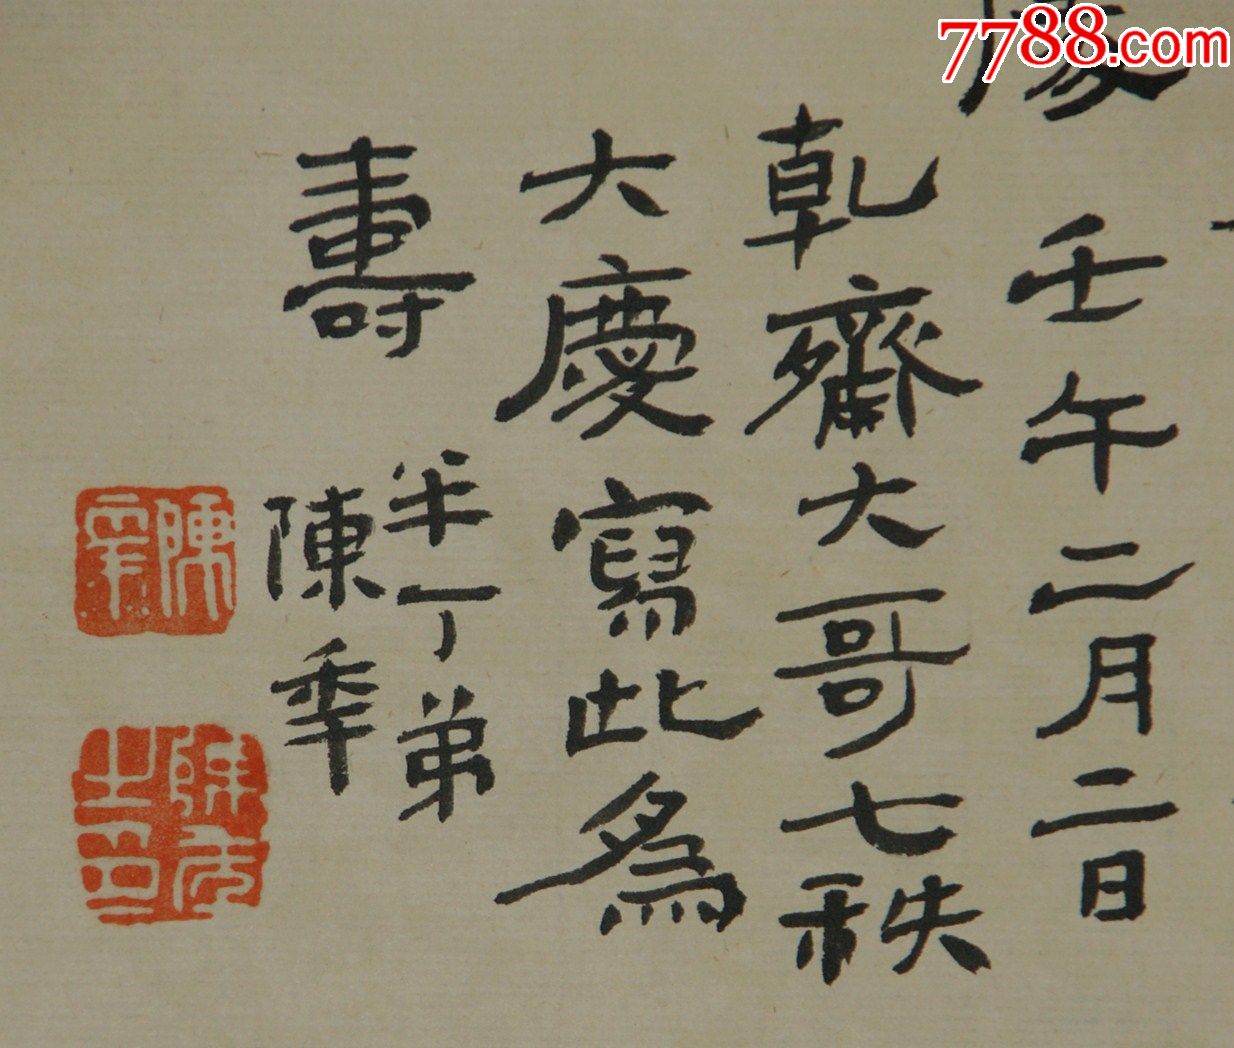 7788.com
壬午二月二日
乾齋大哥七秩
大慶寫此為
壽
半丁弟
陳年
陳年